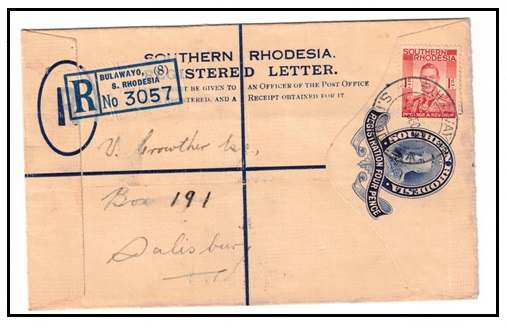 SOUTHERN RHODESIA.
REGISTERED LETTER.
BE GIVEN TO AN OFFICER OF THE POST OFFICE
AND A RECEIPT OBTAINED FOR IT.
R
BULAWAYO, (8)
S. RHODESIA
No 3057
SOUTHERN
RHODESIA
POSTAGE & REVENUE
REGISTRATION FOUR PENCE
SOUTHERN RHODESIA
V. Crowther Esq.,
Box 191
Salisbury